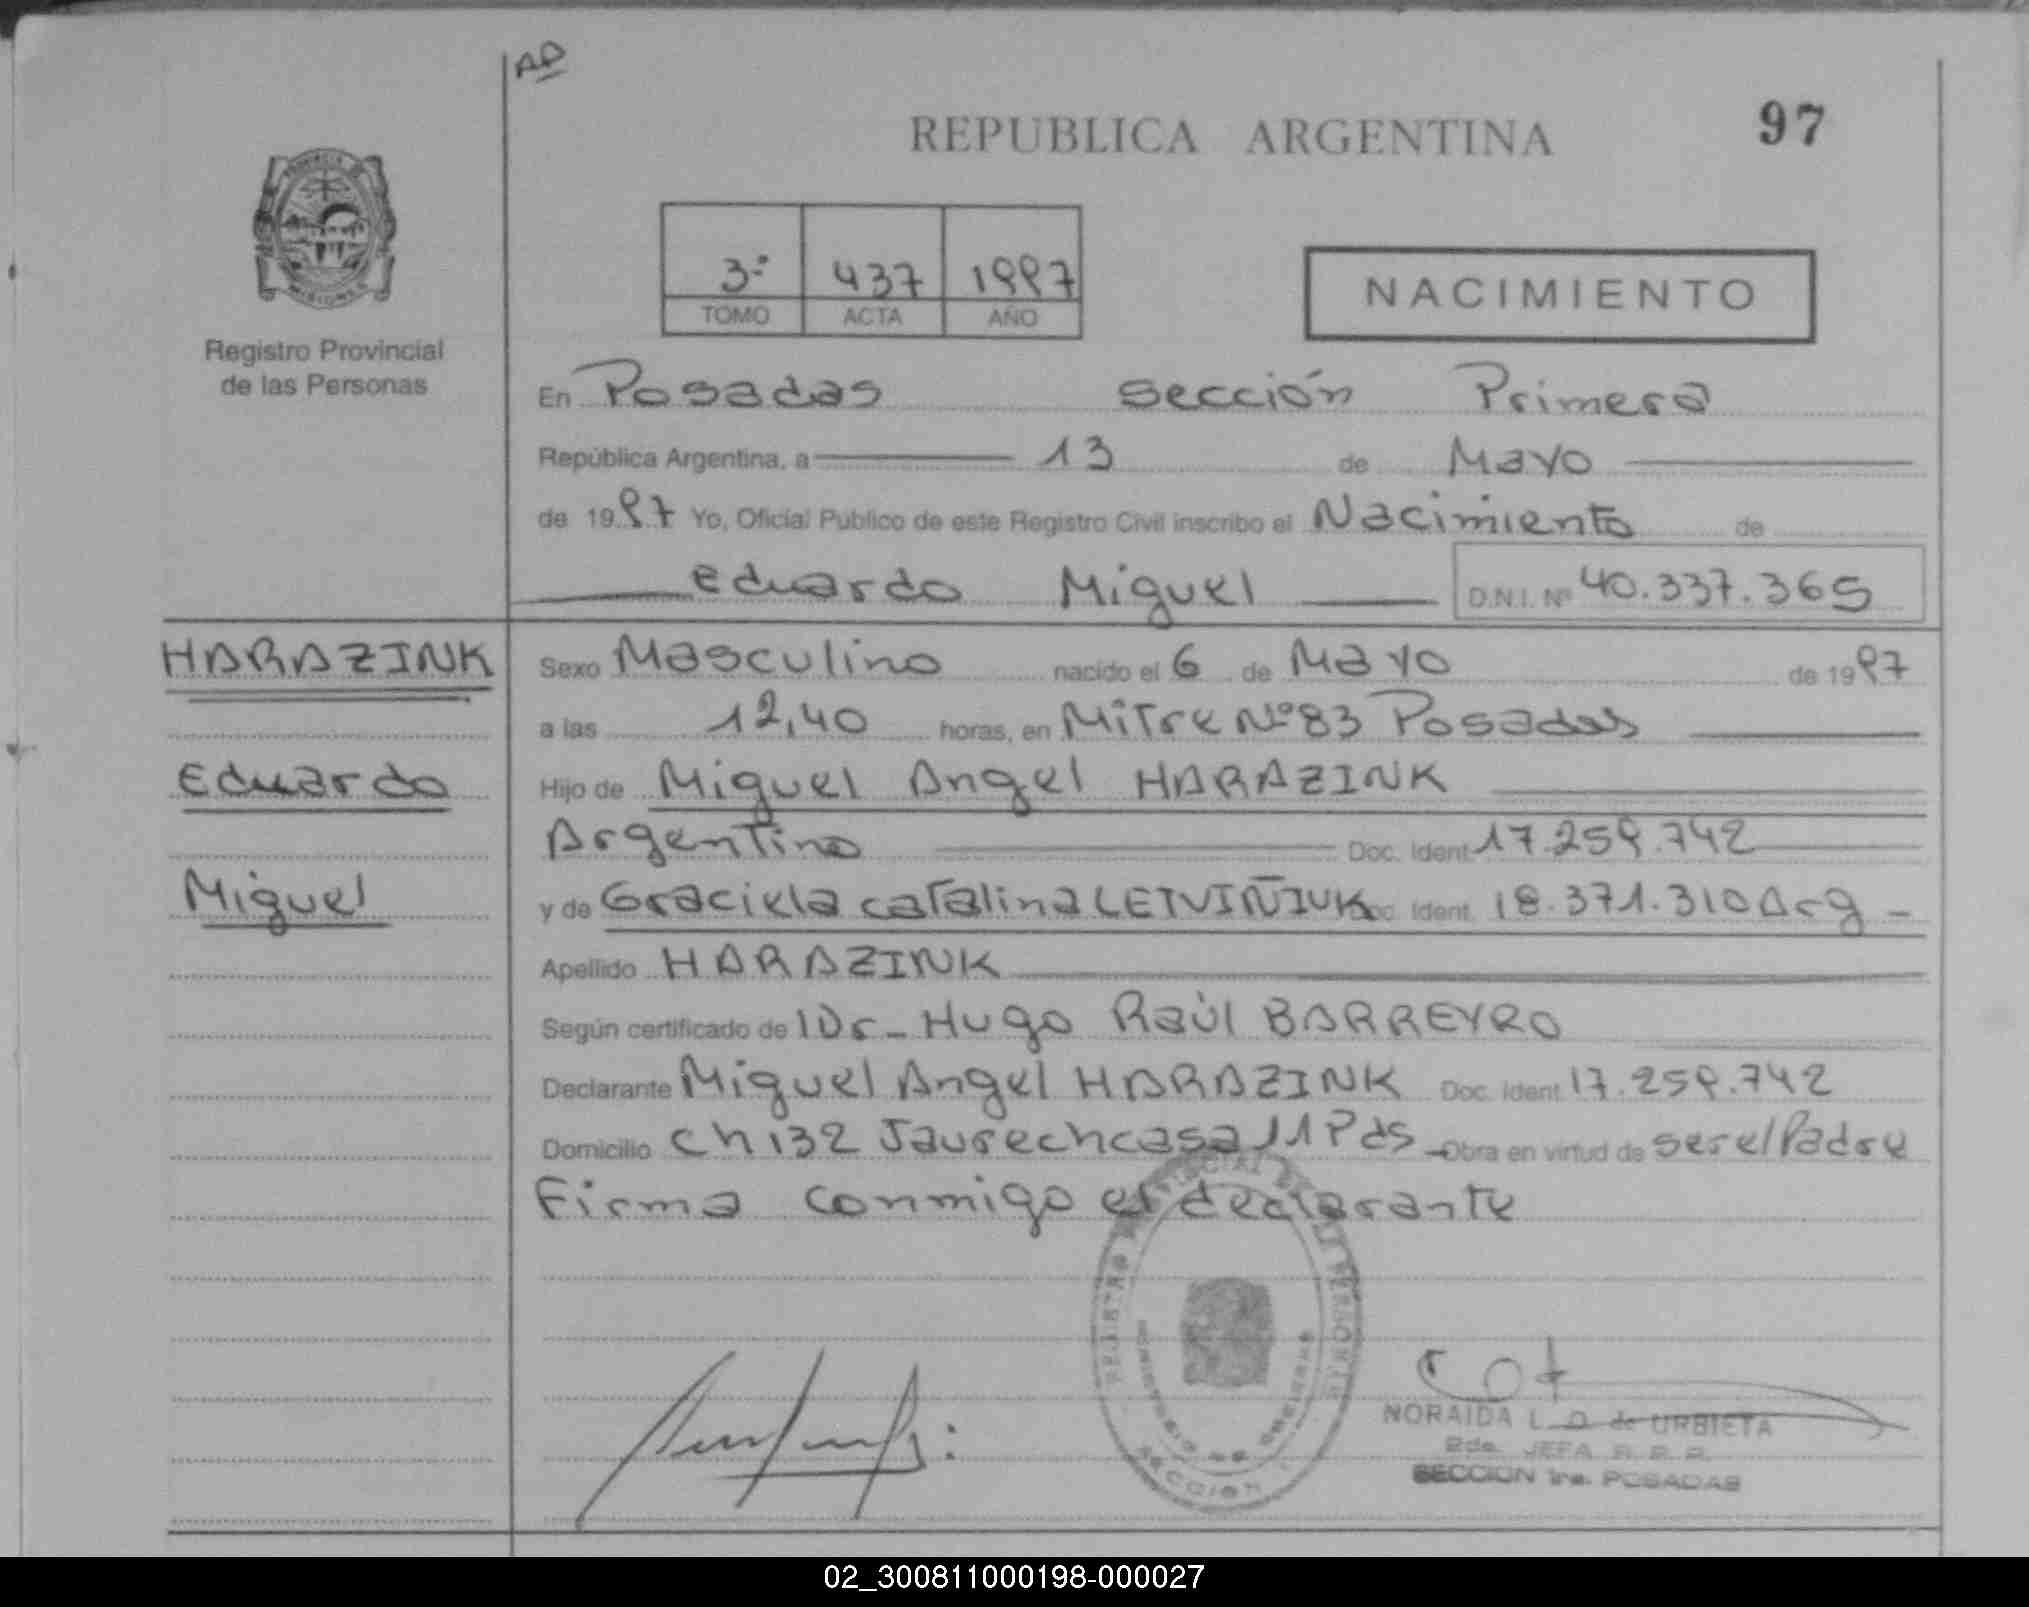 AD
REPUBLICA ARGENTINA
97
3º 437 1997
TOMO ACTA AÑO
NACIMIENTO
MISIONES
Registro Provincial
de las Personas
En Posadas sección Primera
República Argentina, a 13 de Mayo
de 1997 Yo, Oficial Publico de este Registro Civil inscribo el Nacimiento de
Eduardo Miguel D.N.I. Nº 40.337.365
HARAZINK
Eduardo
Miguel
Sexo Masculino nacido el 6 de Mayo de 1997
a las 12,40 horas, en Mitre Nº 83 Posadas
Hijo de Miguel Angel HARAZINK
Argentino Doc. Ident. 17.259.742
y de Graciela catalina LEIVIÑIUK Doc. Ident. 18.371.310 Arg -
Apellido HARAZINK
Según certificado de Dr- Hugo Raúl BARREYRO
Declarante Miguel Angel HARAZINK Doc. Ident. 17.259.742
Domicilio ch 132 Jaurech casa 11 Pds - Obra en virtud de ser el Padre
Firma conmigo el declarante
NORAIDA L. O. de URBIETA
2da. JEFA R. P. P.
SECCION 1ra. POSADAS
02_300811000198-000027